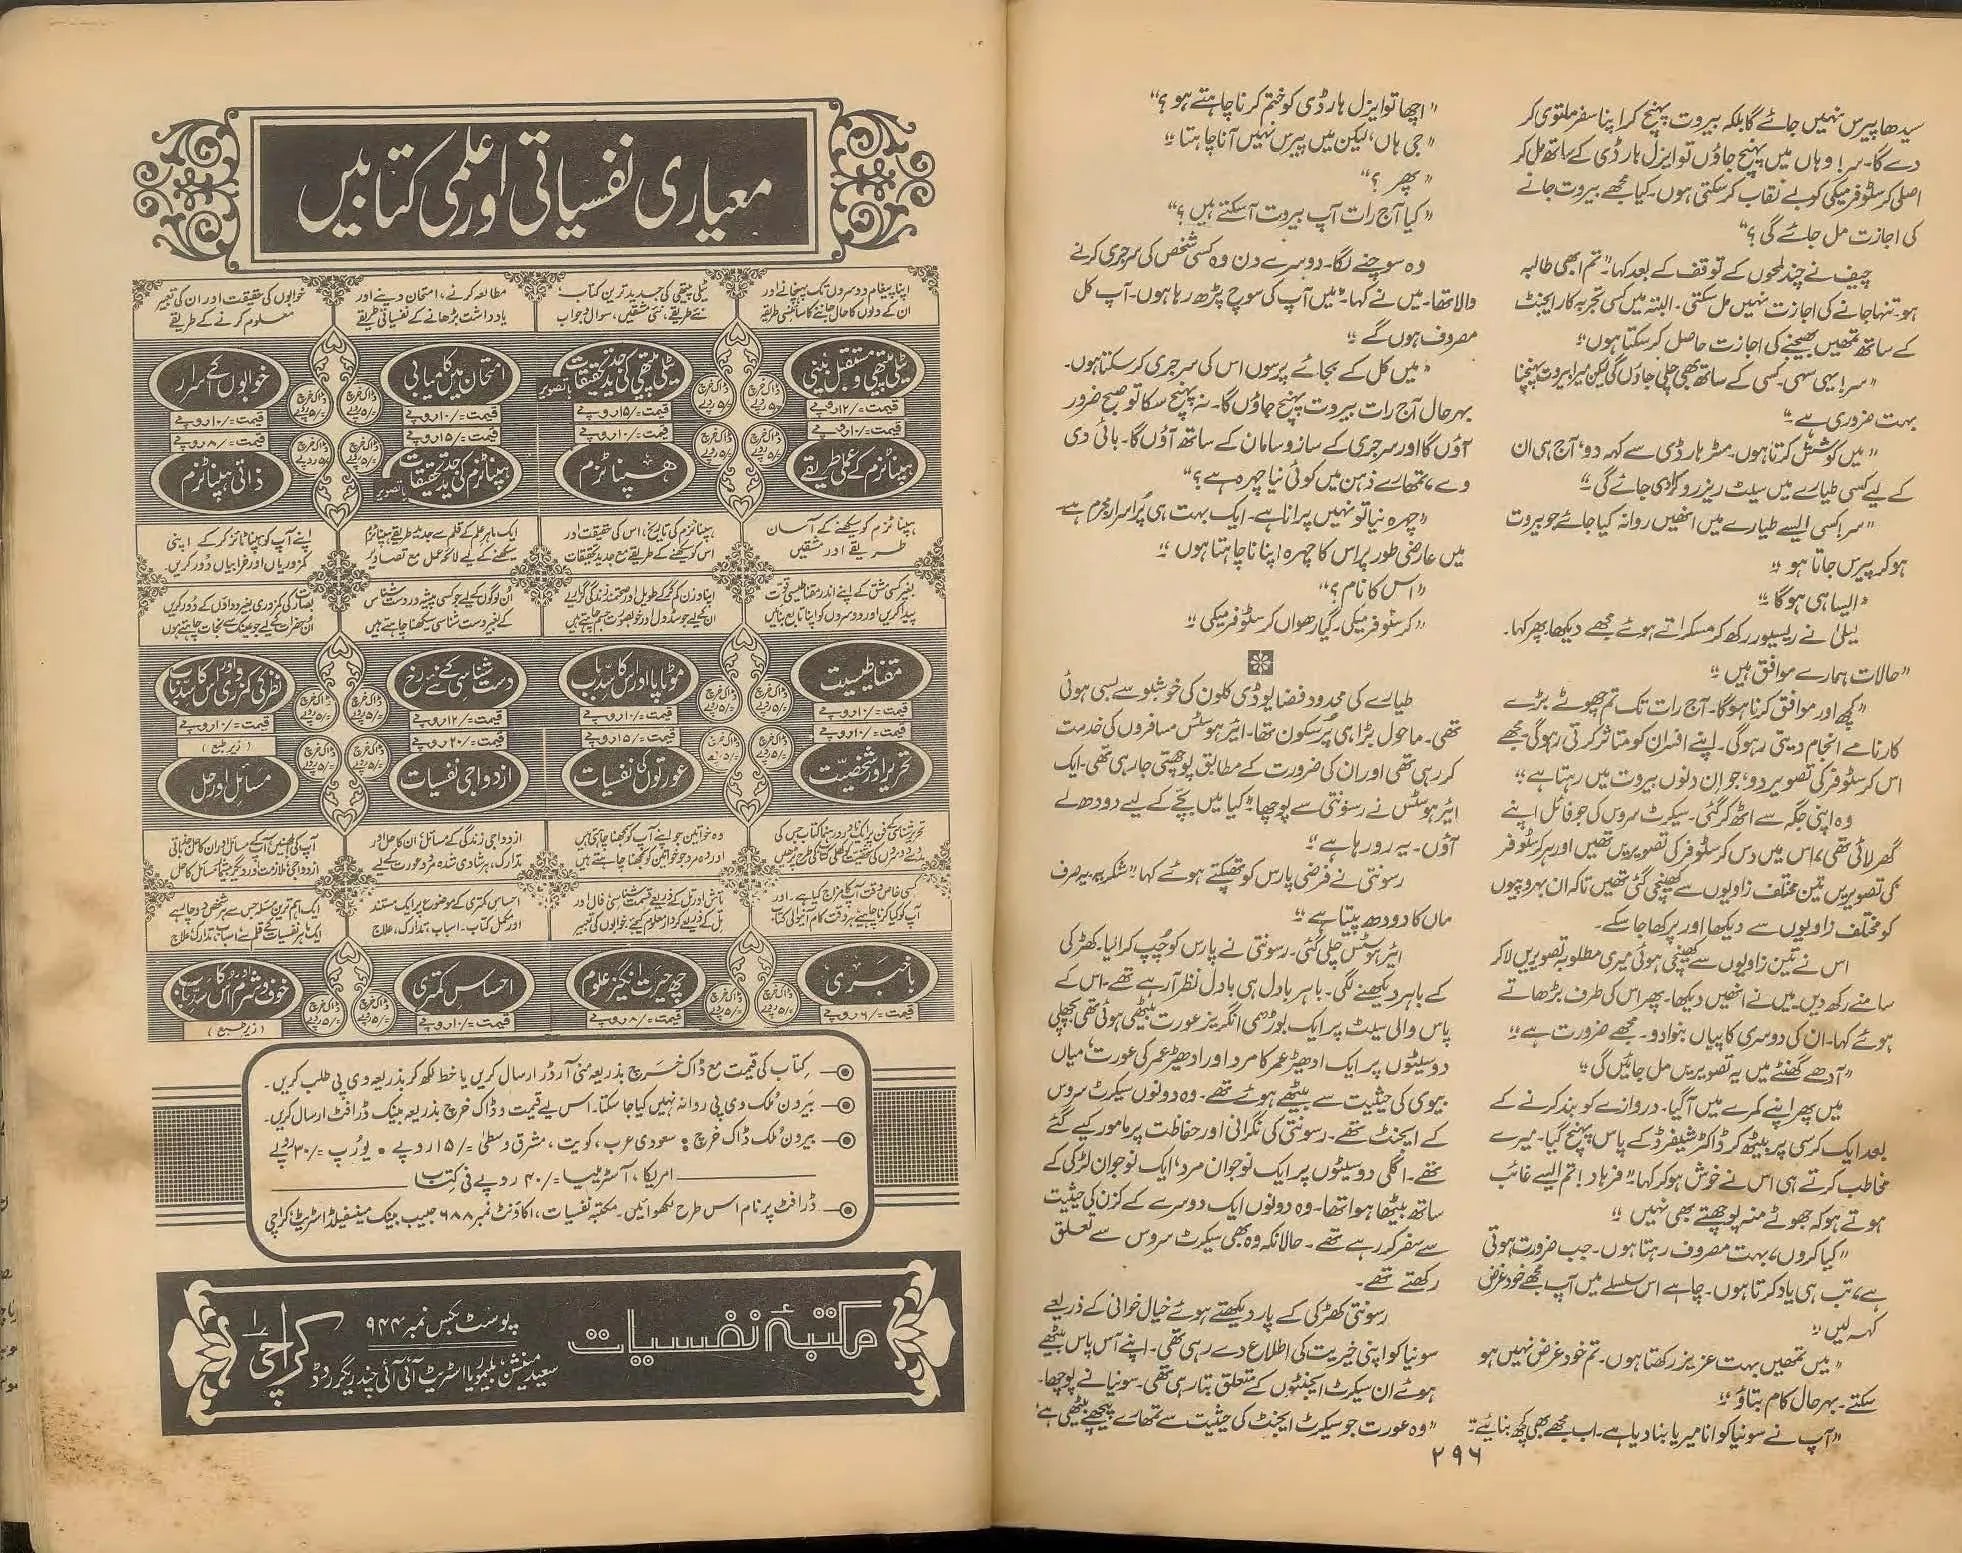 سیدھا پیرس نہیں جائے گا بلکہ بیروت پہنچ کر اپنا سفر ملتوی کر
دے گا۔ سر! وہاں میں پہنچ جاؤں تو ایزل ہارڈی کے ساتھ مل کر
اصلی کرسٹوفر میکی کو بے نقاب کر سکتی ہوں۔ کیا مجھے بیروت جانے
کی اجازت مل جائے گی ؟“
چیف نے چند لمحوں کے توقف کے بعد کہا۔ ”تم ابھی طالبہ
ہو۔ تنہا جانے کی اجازت نہیں مل سکتی۔ البتہ میں کسی تجربہ کار ایجنٹ
کے ساتھ تمھیں بھیجنے کی اجازت حاصل کر سکتا ہوں“
”سر! یہی سہی۔ کسی کے ساتھ بھی چلی جاؤں گی لیکن میرا بیروت پہنچنا
بہت ضروری ہے“
”میں کوشش کرتا ہوں۔ مسٹر ہارڈی سے کہہ دو، آج ہی ان
کے لیے کسی طیارے میں سیٹ ریزرو کرا دی جائے گی“
”سر! کسی ایسے طیارے میں انھیں روانہ کیا جائے جو بیروت
ہو کر پیرس جاتا ہو“
”ایسا ہی ہوگا“
لیلیٰ نے ریسیور رکھ کر مسکراتے ہوئے مجھے دیکھا پھر کہا۔
”حالات ہمارے موافق ہیں“
”کچھ اور موافق کرنا ہوگا۔ آج رات تک تم چھوٹے بڑے
کارنامے انجام دیتی رہو گی۔ اپنے افسران کو متاثر کرتی رہو گی۔ مجھے
اس کرسٹوفر کی تصویر دو، جو ان دنوں بیروت میں رہتا ہے“
وہ اپنی جگہ سے اٹھ کر گئی۔ سیکرٹ سروس کی جو فائل اپنے
گھر لائی تھی، اس میں دس کرسٹوفر کی تصویریں تھیں اور ہر کرسٹوفر
کی تصویریں تین مختلف زاویوں سے کھینچی گئی تھیں تاکہ ان بہروپیوں
کو مختلف زاویوں سے دیکھا اور پرکھا جا سکے۔
اس نے تین زاویوں سے کھینچی ہوئی میری مطلوبہ تصویریں لا کر
سامنے رکھ دیں۔ میں نے انھیں دیکھا۔ پھر اس کی طرف بڑھاتے
ہوئے کہا۔ ان کی دوسری کاپیاں بنوا دو۔ مجھے ضرورت ہے“
”آدھے گھنٹے میں یہ تصویریں مل جائیں گی“
میں پھر اپنے کمرے میں آگیا۔ دروازے کو بند کرنے کے
بعد ایک کرسی پر بیٹھ کر ڈاکٹر شیفرڈ کے پاس پہنچ گیا۔ میرے
مخاطب کرتے ہی اس نے خوش ہو کر کہا۔ ”فرہاد! تم ایسے غائب
ہوتے ہو کہ جھوٹے منہ پوچھتے بھی نہیں“
”کیا کروں، بہت مصروف رہتا ہوں۔ جب ضرورت ہوتی
ہے، تب ہی یاد کرتا ہوں۔ چاہے اس سلسلے میں آپ مجھے خود غرض
کہہ لیں“
”میں تمھیں بہت عزیز رکھتا ہوں۔ تم خود غرض نہیں ہو
سکتے۔ بہر حال کام بتاؤ“
”آپ نے سونیا کو انا میریا بنا دیا ہے۔ اب مجھے بھی کچھ بنائیے“
”اچھا تو ایزل ہارڈی کو ختم کرنا چاہتے ہو ؟“
”جی ہاں، لیکن میں پیرس نہیں آنا چاہتا“
”پھر ؟“
”کیا آج رات آپ بیروت آسکتے ہیں ؟“
وہ سوچنے لگا۔ دوسرے دن وہ کسی شخص کی سرجری کرنے
والا تھا۔ میں نے کہا۔ ”میں آپ کی سوچ پڑھ رہا ہوں۔ آپ کل
مصروف ہوں گے“
”میں کل کے بجائے پرسوں اس کی سرجری کر سکتا ہوں۔
بہر حال آج رات بیروت پہنچ جاؤں گا۔ نہ پہنچ سکا تو صبح ضرور
آؤں گا اور سرجری کے ساز و سامان کے ساتھ آؤں گا۔ بائی دی
وے، تمھارے ذہن میں کوئی نیا چہرہ ہے ؟“
”چہرہ نیا تو نہیں پرانا ہے۔ ایک بہت ہی پُراسرار مجرم ہے۔
میں عارضی طور پر اس کا چہرہ اپنانا چاہتا ہوں“
”اس کا نام ؟“
”کرسٹوفر میکی۔ گیارھواں کرسٹوفر میکی“
طیارے کی محدود فضا یوڈی کلون کی خوشبو سے بسی ہوئی
تھی۔ ماحول بڑا ہی پُرسکون تھا۔ ائیر ہوسٹس مسافروں کی خدمت
کر رہی تھی اور ان کی ضرورت کے مطابق پوچھتی جا رہی تھی۔ ایک
ائیر ہوسٹس نے رسونتی سے پوچھا۔ ”کیا میں بچے کے لیے دودھ لے
آؤں۔ یہ رو رہا ہے“
رسونتی نے فرضی پارس کو تھپکتے ہوئے کہا۔ ”شکریہ، یہ صرف
ماں کا دودھ پیتا ہے“
ائیر ہوسٹس چلی گئی۔ رسونتی نے پارس کو چُپ کرایا۔ کھڑکی
کے باہر دیکھنے لگی۔ باہر بادل ہی بادل نظر آ رہے تھے۔ اس کے
پاس والی سیٹ پر ایک بوڑھی انگریز عورت بیٹھی ہوئی تھی پچھلی
دو سیٹوں پر ایک ادھیڑ عمر کا مرد اور ادھیڑ عمر کی عورت میاں
بیوی کی حیثیت سے بیٹھے ہوئے تھے۔ وہ دونوں سیکرٹ سروس
کے ایجنٹ تھے۔ رسونتی کی نگرانی اور حفاظت پر مامور کیے گئے
تھے۔ اگلی دو سیٹوں پر ایک نوجوان مرد، ایک نوجوان لڑکی کے
ساتھ بیٹھا ہوا تھا۔ وہ دونوں ایک دوسرے کے کزن کی حیثیت
سے سفر کر رہے تھے۔ حالانکہ وہ بھی سیکرٹ سروس سے تعلق
رکھتے تھے۔
رسونتی کھڑکی کے پار دیکھتے ہوئے خیال خوانی کے ذریعے
سونیا کو اپنی خیریت کی اطلاع دے رہی تھی۔ اپنے آس پاس بیٹھے
ہوئے ان سیکرٹ ایجنٹوں کے متعلق بتا رہی تھی۔ سونیا نے پوچھا۔
”وہ عورت جو سیکرٹ ایجنٹ کی حیثیت سے تمھارے پیچھے بیٹھی ہے
۲۹۶
معیاری نفسیاتی اور علمی کتابیں
اپنا پیغام دوسروں تک پہنچانے اور
ان کے دلوں کا حال جاننے کا سائنسی طریقہ
ٹیلی پیتھی کی جدید ترین کتاب،
نئے طریقے، نئی مشقیں، سوال و جواب
مطالعہ کرنے، امتحان دینے اور
یادداشت بڑھانے کے نفسیاتی طریقے
خوابوں کی حقیقت اور ان کی تعبیر
معلوم کرنے کے طریقے
ٹیلی پیتھی و مستقبل بینی
قیمت =/۱۲ روپے
ڈاک خرچ =/۵ روپے
ٹیلی پیتھی کی جدید تحقیقات با تصویر
قیمت =/۱۵ روپے
امتحان میں کامیابی
قیمت =/۱۰ روپے
خوابوں کے اسرار
قیمت =/۱۰ روپے
قیمت =/۱۰ روپے
ہپناٹزم کے عملی طریقے
قیمت =/۱۰ روپے
ہپناٹزم
قیمت =/۱۵ روپے
ہپناٹزم کی جدید تحقیقات با تصویر
قیمت =/۸ روپے
ذاتی ہپناٹزم
ہپناٹزم کو سیکھنے کے آسان
طریقے اور مشقیں
ہپناٹزم کی تاریخ، اس کی حقیقت اور
اس کو سیکھنے کے طریقے مع جدید تحقیقات
ایک ماہر علم کے قلم سے جدید طریقے ہپناٹزم
سیکھنے کے لیے لائحہ عمل مع تصاویر
اپنے آپ کو ہپناٹائز کر کے اپنی
کمزوریاں اور خرابیاں دُور کریں۔
بغیر کسی مشق کے اپنے اندر مقناطیسی قوت
پیدا کریں اور دوسروں کو اپنا تابع بنائیں
اپنا وزن کم کر کے طویل اور صحتمند زندگی گزاریے
ان کے لیے جو سڈول اور خوبصورت جسم چاہتے ہیں
اُن لوگوں کے لیے جو کسی پیشہ ور دست شناس
کے بغیر دست شناسی سیکھنا چاہتے ہیں
بصارت کی کمزوری بغیر دواؤں کے دُور کریں
اُن حضرات کے لیے جو عینک سے نجات چاہتے ہوں
مقناطیسیت
قیمت =/۱۰ روپے
موٹاپا اور اس کا سدِّباب
قیمت =/۱۰ روپے
دست شناسی کے نئے رخ
قیمت =/۱۲ روپے
نظر کی کمزوری اور اس کا سدِّباب
قیمت =/۱۰ روپے
قیمت =/۱۰ روپے
تحریر اور شخصیت
قیمت =/۱۵ روپے
عورتوں کی نفسیات
قیمت =/۲۰ روپے
ازدواجی نفسیات
( زیر طبع )
مسائل اور حل
وہ خواتین جو اپنے آپ کو سمجھنا چاہتی ہیں
اور وہ مرد جو خواتین کو سمجھنا چاہتے ہیں
ازدواجی زندگی کے مسائل، ان کا حل اور
تدارک، ہر شادی شدہ مرد و عورت کے لیے
احساس کمتری کے موضوع پر ایک مستند
اور مکمل کتاب۔ اسباب، تدارک، علاج
باخبری
قیمت =/۶ روپے
چھ حیرت انگیز علوم
قیمت =/۸ روپے
احساسِ کمتری
قیمت =/۱۰ روپے
خوف و شرم اور اُس کا سدِّباب
( زیر طبع )
کتاب کی قیمت مع ڈاک خرچ بذریعہ منی آرڈر ارسال کریں یا خط لکھ کر بذریعہ وی پی طلب کریں۔
بیرون مُلک وی پی روانہ نہیں کیا جا سکتا۔ اس لیے قیمت و ڈاک خرچ بذریعہ بینک ڈرافٹ ارسال کریں۔
بیرون مُلک ڈاک خرچ : سعودی عرب، کویت، مشرق وسطیٰ =/۱۵ روپے • یورُپ =/۳۰ روپے
امریکا، آسٹریلیا =/۴۰ روپے فی کتاب
ڈرافٹ پر نام اس طرح لکھوائیں۔ مکتبہ نفسیات، اکاؤنٹ نمبر ۶۸۸ حبیب بینک میکنیفیلڈ اسٹریٹ کراچی
مکتبۂ نفسیات
پوسٹ بکس نمبر ۹۴۴
سعید مینشن، بلیموریا اسٹریٹ آئی آئی چندریگر روڈ
کراچی ۱